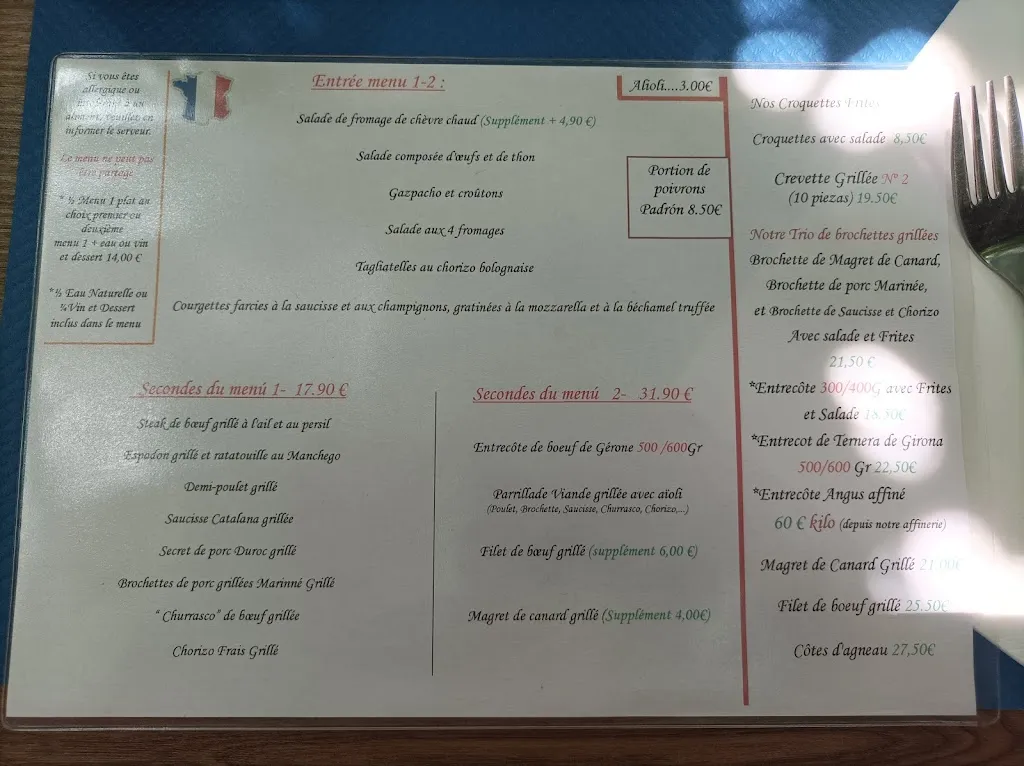 Si vous êtes
allergique ou
informer le serveur.
Le menu ne peut pas
être partagé
* ½ Menu 1 plat au
choix premier ou
deuxième
menu 1 + eau ou vin
et dessert 14,00 €
*½ Eau Naturelle ou
¼ Vin et Dessert
inclus dans le menu
Entrée menu 1-2 :
Salade de fromage de chèvre chaud (Supplément + 4,90 €)
Salade composée d'œufs et de thon
Gazpacho et croûtons
Salade aux 4 fromages
Tagliatelles au chorizo bolognaise
Courgettes farcies à la saucisse et aux champignons, gratinées à la mozzarella et à la béchamel truffée
Alioli....3.00€
Portion de
poivrons
Padrón 8.50€
Secondes du menú 1- 17.90 €
Steak de bœuf grillé à l'ail et au persil
Espadon grillé et ratatouille au Manchego
Demi-poulet grillé
Saucisse Catalana grillée
Secret de porc Duroc grillé
Brochettes de porc grillées Marinné Grillé
“ Churrasco” de bœuf grillée
Chorizo Frais Grillé
Secondes du menú 2- 31.90 €
Entrecôte de boeuf de Gérone 500 /600Gr
Parrillade Viande grillée avec aïoli
(Poulet, Brochette, Saucisse, Churrasco, Chorizo,...)
Filet de bœuf grillé (supplément 6,00 €)
Magret de canard grillé (Supplément 4,00€)
Nos Croquettes Frites
Croquettes avec salade 8,50€
Crevette Grillée Nº 2
(10 piezas) 19.50€
Notre Trio de brochettes grillées
Brochette de Magret de Canard,
Brochette de porc Marinée,
et Brochette de Saucisse et Chorizo
Avec salade et Frites
21,50 €
*Entrecôte 300/400G avec Frites
et Salade 18.50€
*Entrecot de Ternera de Girona
500/600 Gr 22,50€
*Entrecôte Angus affiné
60 € kilo (depuis notre affinerie)
Magret de Canard Grillé 21.00€
Filet de boeuf grillé 25.50€
Côtes d'agneau 27,50€